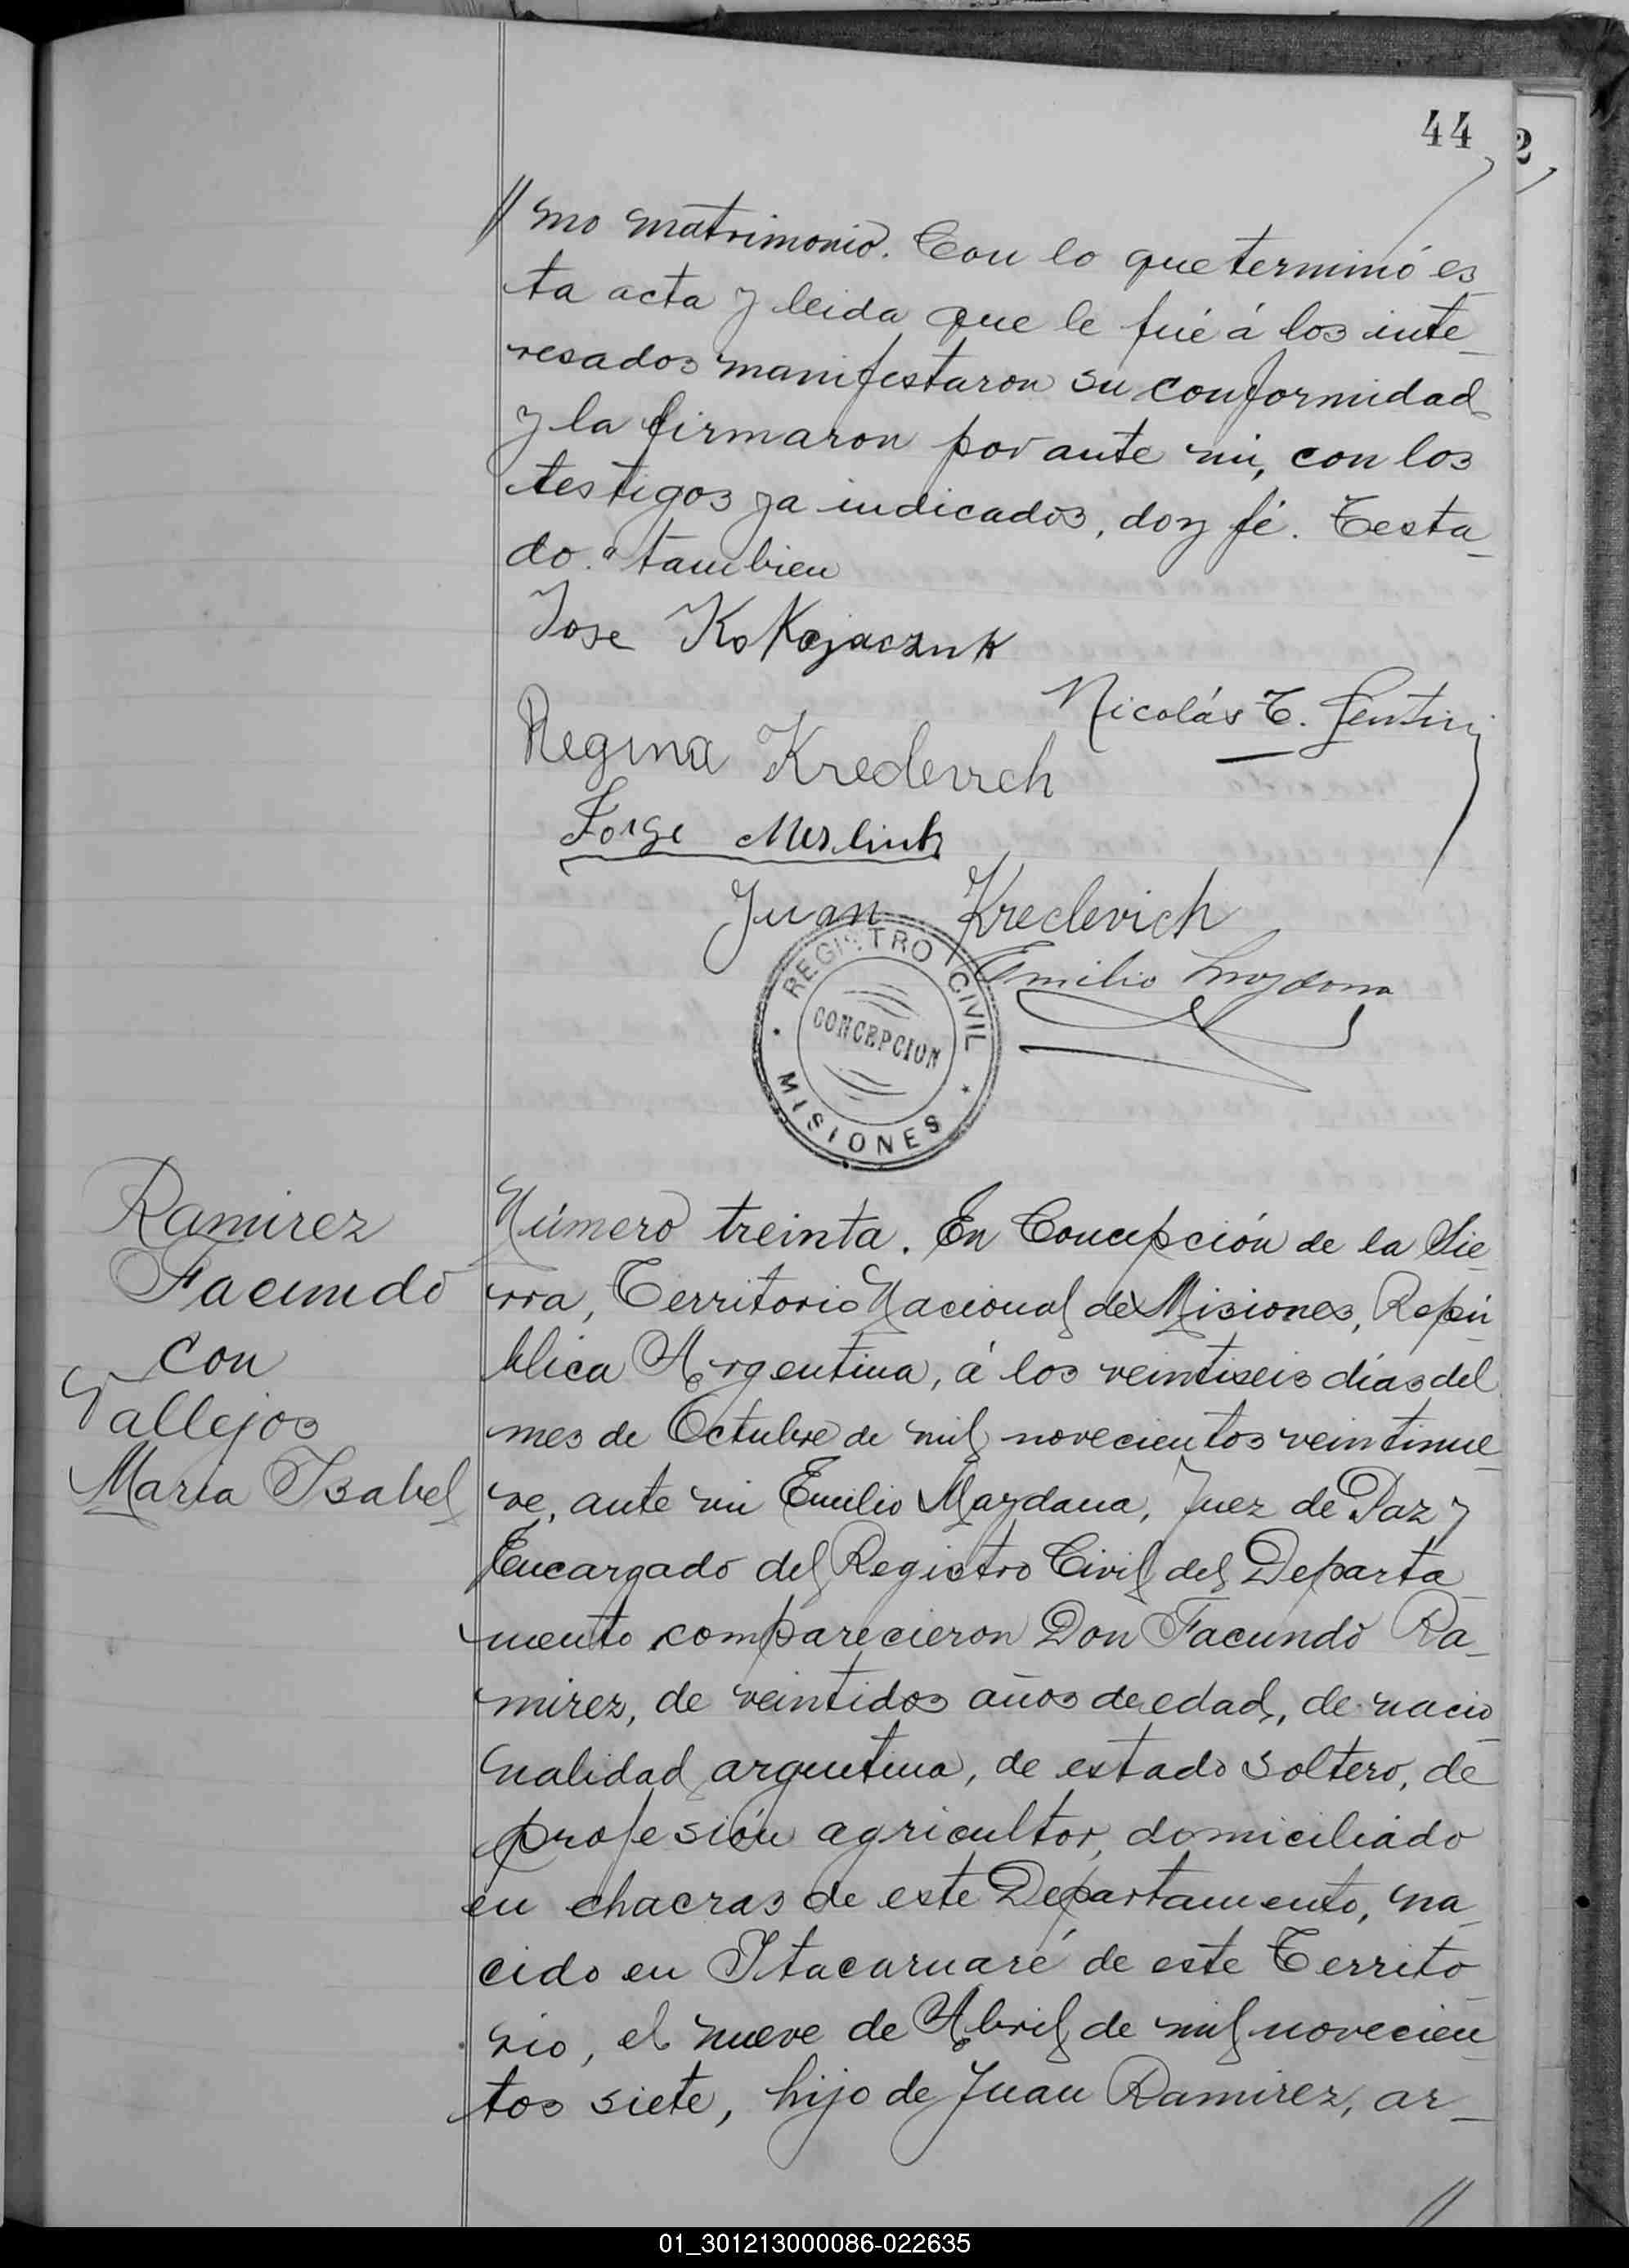 44
2
// mo matrimonio. Con lo que terminó es_
ta acta y leida que le fué á los inte_
resados manifestaron su conformidad
y la firmaron por ante mi, con los
testigos ya indicados, doy fé. Testa_
do "tambien
Jose Kokojaczuk
Nicolás T. Gentini
Regina Kredevich
Jorge Merlink
Juan Kredevich
Emilio Mazdana
REGISTRO CIVIL
CONCEPCION
MISIONES
Ramirez
Facundo
con
Vallejos
Maria Isabel
Número treinta. En Concepción de la Sie_
rra, Territorio Nacional de Misiones, Repú_
blica Argentina, á los veintiseis días del
mes de Octubre de mil novecientos veintinue_
ve, ante mi Emilio Mazdana, Juez de Paz y
Encargado del Registro Civil del Departa_
mento comparecieron Don Facundo Ra_
mirez, de veintidos años de edad, de nacio_
nalidad argentina, de estado soltero, de
profesión agricultor, domiciliado
en chacras de este Departamento, na_
cido en Itacaruaré de este Territo_
rio, el nueve de Abril de mil novecien_
tos siete, hijo de Juan Ramirez, ar_
//
01_301213000086-022635